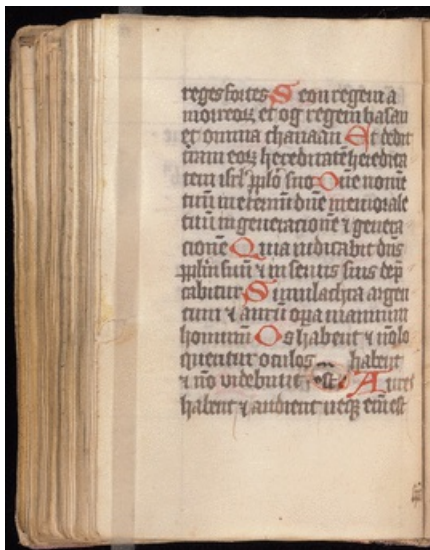 reges fortes Seon regem a
morreoꝝ et og regem basan
et omnia chanaan Et dedit
terram eoꝝ hereditatē heredita
tem isrl pplo suo Dñe nomē
tuū in eternū dñe memoriale
tuū in generacionē ⁊ genera
cionē Quia iudicabit dñs
pplm suū ⁊ in seruis suis dep
cabitur Simulachra argen
tum ⁊ aurū opa manuum
hominum Os habent ⁊ nō lo
quentur oculos habent
⁊ nō videbunt Aures
habent ⁊ audient neqꝫ eni est